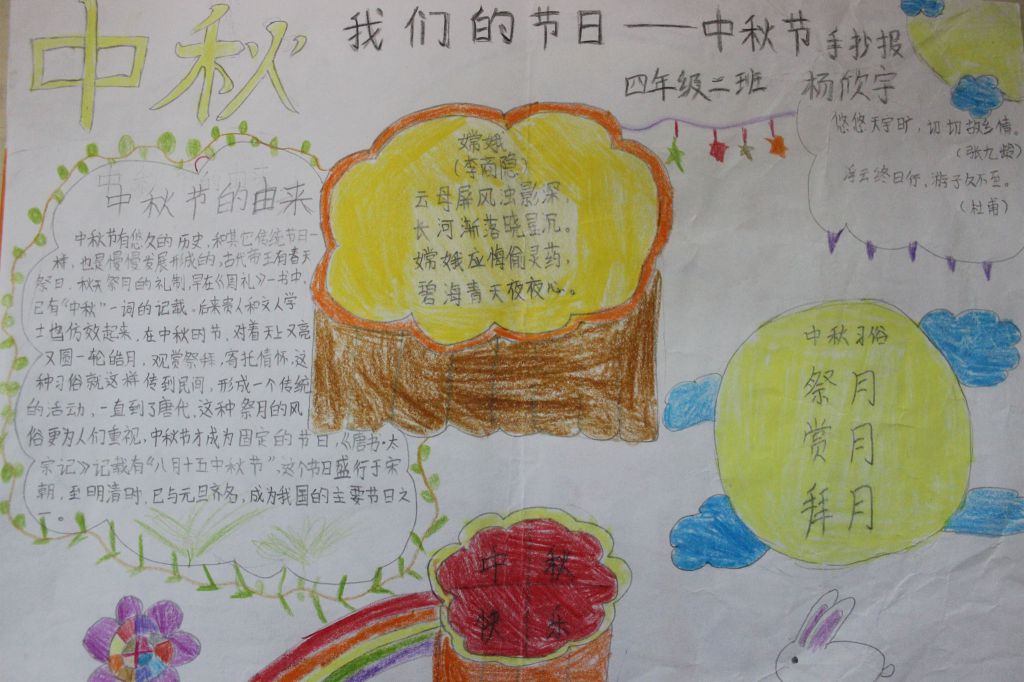 中秋
我们的节日——中秋节手抄报
四年级二班 杨欣宇
中秋节的由来
中秋节有悠久的历史,和其它传统节日一
样,也是慢慢发展形成的,古代帝王有春天
祭日,秋天祭月的礼制,早在《周礼》一书中,
已有“中秋”一词的记载。后来贵人和文人学
士也仿效起来,在中秋时节,对着天上又亮
又圆一轮皓月,观赏祭拜,寄托情怀,这
种习俗就这样传到民间,形成一个传统
的活动,一直到了唐代,这种祭月的风
俗更为人们重视,中秋节才成为固定的节日,《唐书·太
宗记》记载有“八月十五中秋节”,这个节日盛行于宋
朝,至明清时,已与元旦齐名,成为我国的主要节日之
一。
嫦娥
(李商隐)
云母屏风浊影深,
长河渐落晓星沉。
嫦娥应悔偷灵药,
碧海青天夜夜心。
悠悠天宇旷,切切故乡情。
(张九龄)
浮云终日行,游子久不至。
(杜甫)
中秋习俗
祭月
赏月
拜月
中秋
快乐